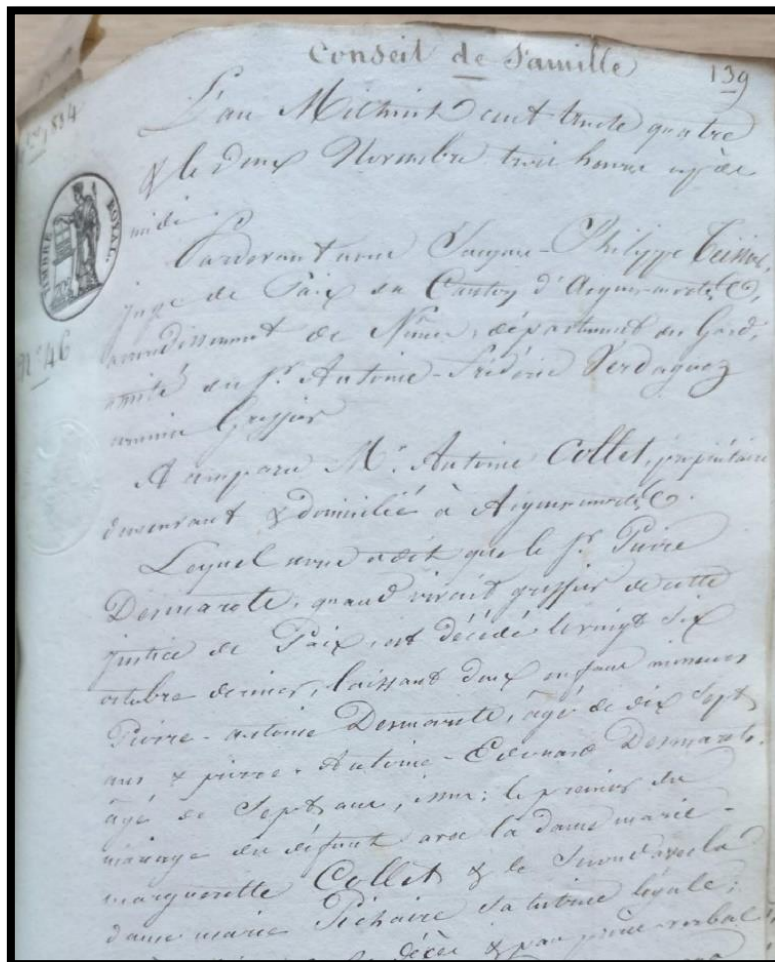 Conseil de famille
139
1834
L'an Mil huit cent trente quatre
& le deux Novembre trois heures après
midi.
TIMBRE ROYAL
Pardevant nous Jacques-Philippe
juge de Paix du Canton d'Aiguesmortes,
arrondissement de Nimes, département du Gard,
assisté du Sr. Antoine-Frédéric Verdaguez
commis Greffier
46
A comparu Mr. Antoine Collet, propriétaire
demeurant & domicilié à Aiguesmortes.
Lequel nous a dit que le Sr. Pierre
Desmarots, quand vivait greffier de cette
justice de Paix, est décédé le vingt six
octobre dernier, laissant deux enfans mineurs
Pierre-antoine Desmarots, âgé de dix sept
ans & pierre-Antoine-Edouard Desmarots,
âgé de Sept ans, issus; le premier du
mariage du défunt avec la dame marie-
marguerite Collet & le Second avec la
dame marie Pichaire sa tutrice légale;
décès & par procès-verbal